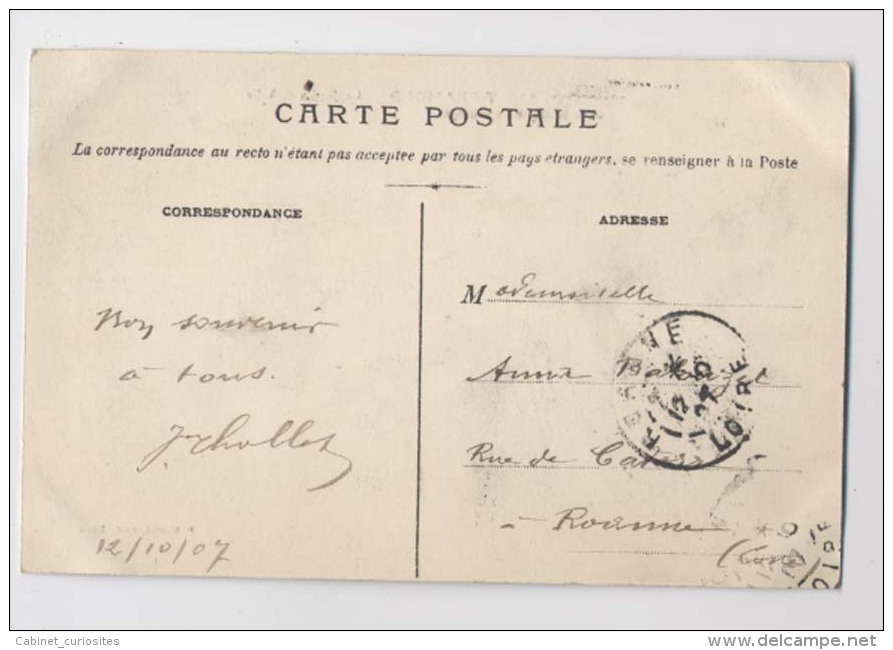 CARTE POSTALE
La correspondance au recto n'étant pas acceptee par tous les pays etrangers, se renseigner à la Poste
CORRESPONDANCE
ADRESSE
Mademoiselle
Bon souvenir
Anna
à tous.
J. Chollet
Rue de
à Roanne
12/10/07
(Loire)
LOIRE
Cabinet_curiosites
www.delcampe.net